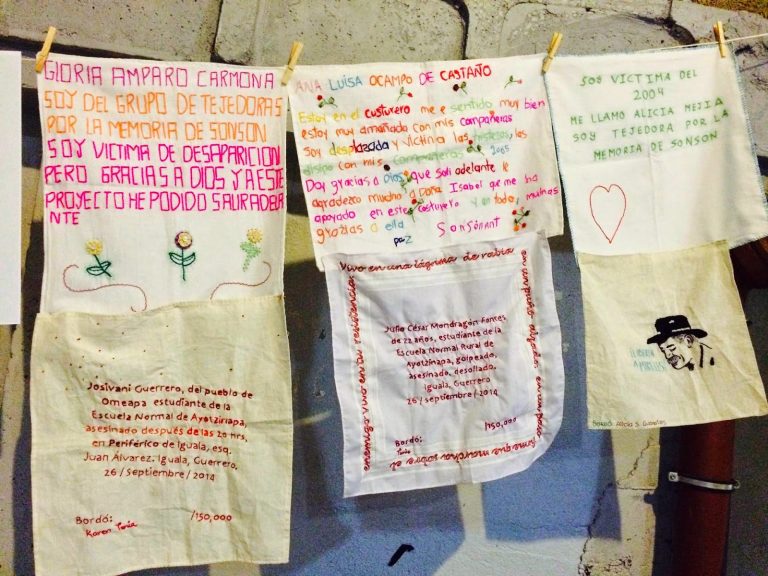 GLORIA AMPARO CARMONA
SOY DEL GRUPO DE TEJEDORAS
POR LA MEMORIA DE SONSON
SOY VICTIMA DE DESAPARICION
PERO GRACIAS A DIOS Y A ESTE
PROYECTO HE PODIDO SALIR ADELA
NTE
Josivani Guerrero, del pueblo de
Omeapa estudiante de la
Escuela Normal de Ayotzinapa,
asesinado después de las 20 hrs.
en Periférico de Iguala, esq.
Juan Álvarez. Iguala, Guerrero,
26/Septiembre/2014
Bordó: /150,000
Karen
ANA LUISA OCAMPO DE CASTAÑO
Estoy en el custurero me e sentido muy bien
estoy muy amañada con mis compañeras
Soy desplazada y victima las tristezas, las
disipo con mis compañeras 2005
Doy gracias a Dios que sali adelante le
agradezco mucho a Doña Isabel que me ha
apoyado en este custurero y en todo, muchas
grazias a ella
paz Sonsón ant
Vivo en una lágrima de rabia
Julio César Mondragón Fontes
de 22 años, estudiante de la
Escuela Normal Rural de
Ayotzinapa, golpeado,
asesinado, desollado.
Iguala, Guerrero
26/septiembre/2014
Bordó: /150,000
SOY VICTIMA DEL
2004
ME LLAMO ALICIA MEJIA
SOY TEJEDORA POR LA
MEMORIA DE SONSON
Bordó: Alicia S.